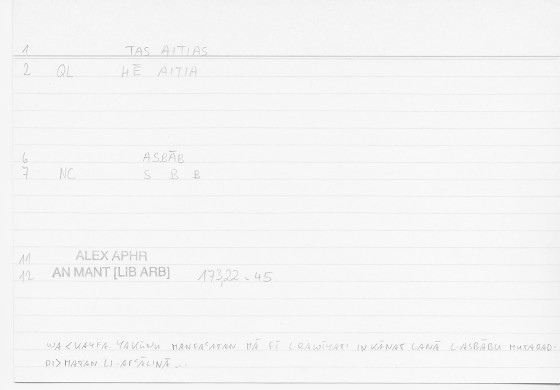 1 TAS AITIAS
2 QL HĒ AITIA
6 ASBĀB
7 NC S B B
11 ALEX APHR
12 AN MANT [LIB ARB] 173,22 - 45
WA<KAYFA YAKŪNU MANFAʿATAN MĀ FĪ L-RAWĪYATI IN KĀNAT LANĀ L-ASBĀBU MUTAQAD-
DI>MATAN LI-AFʿĀLINĀ...